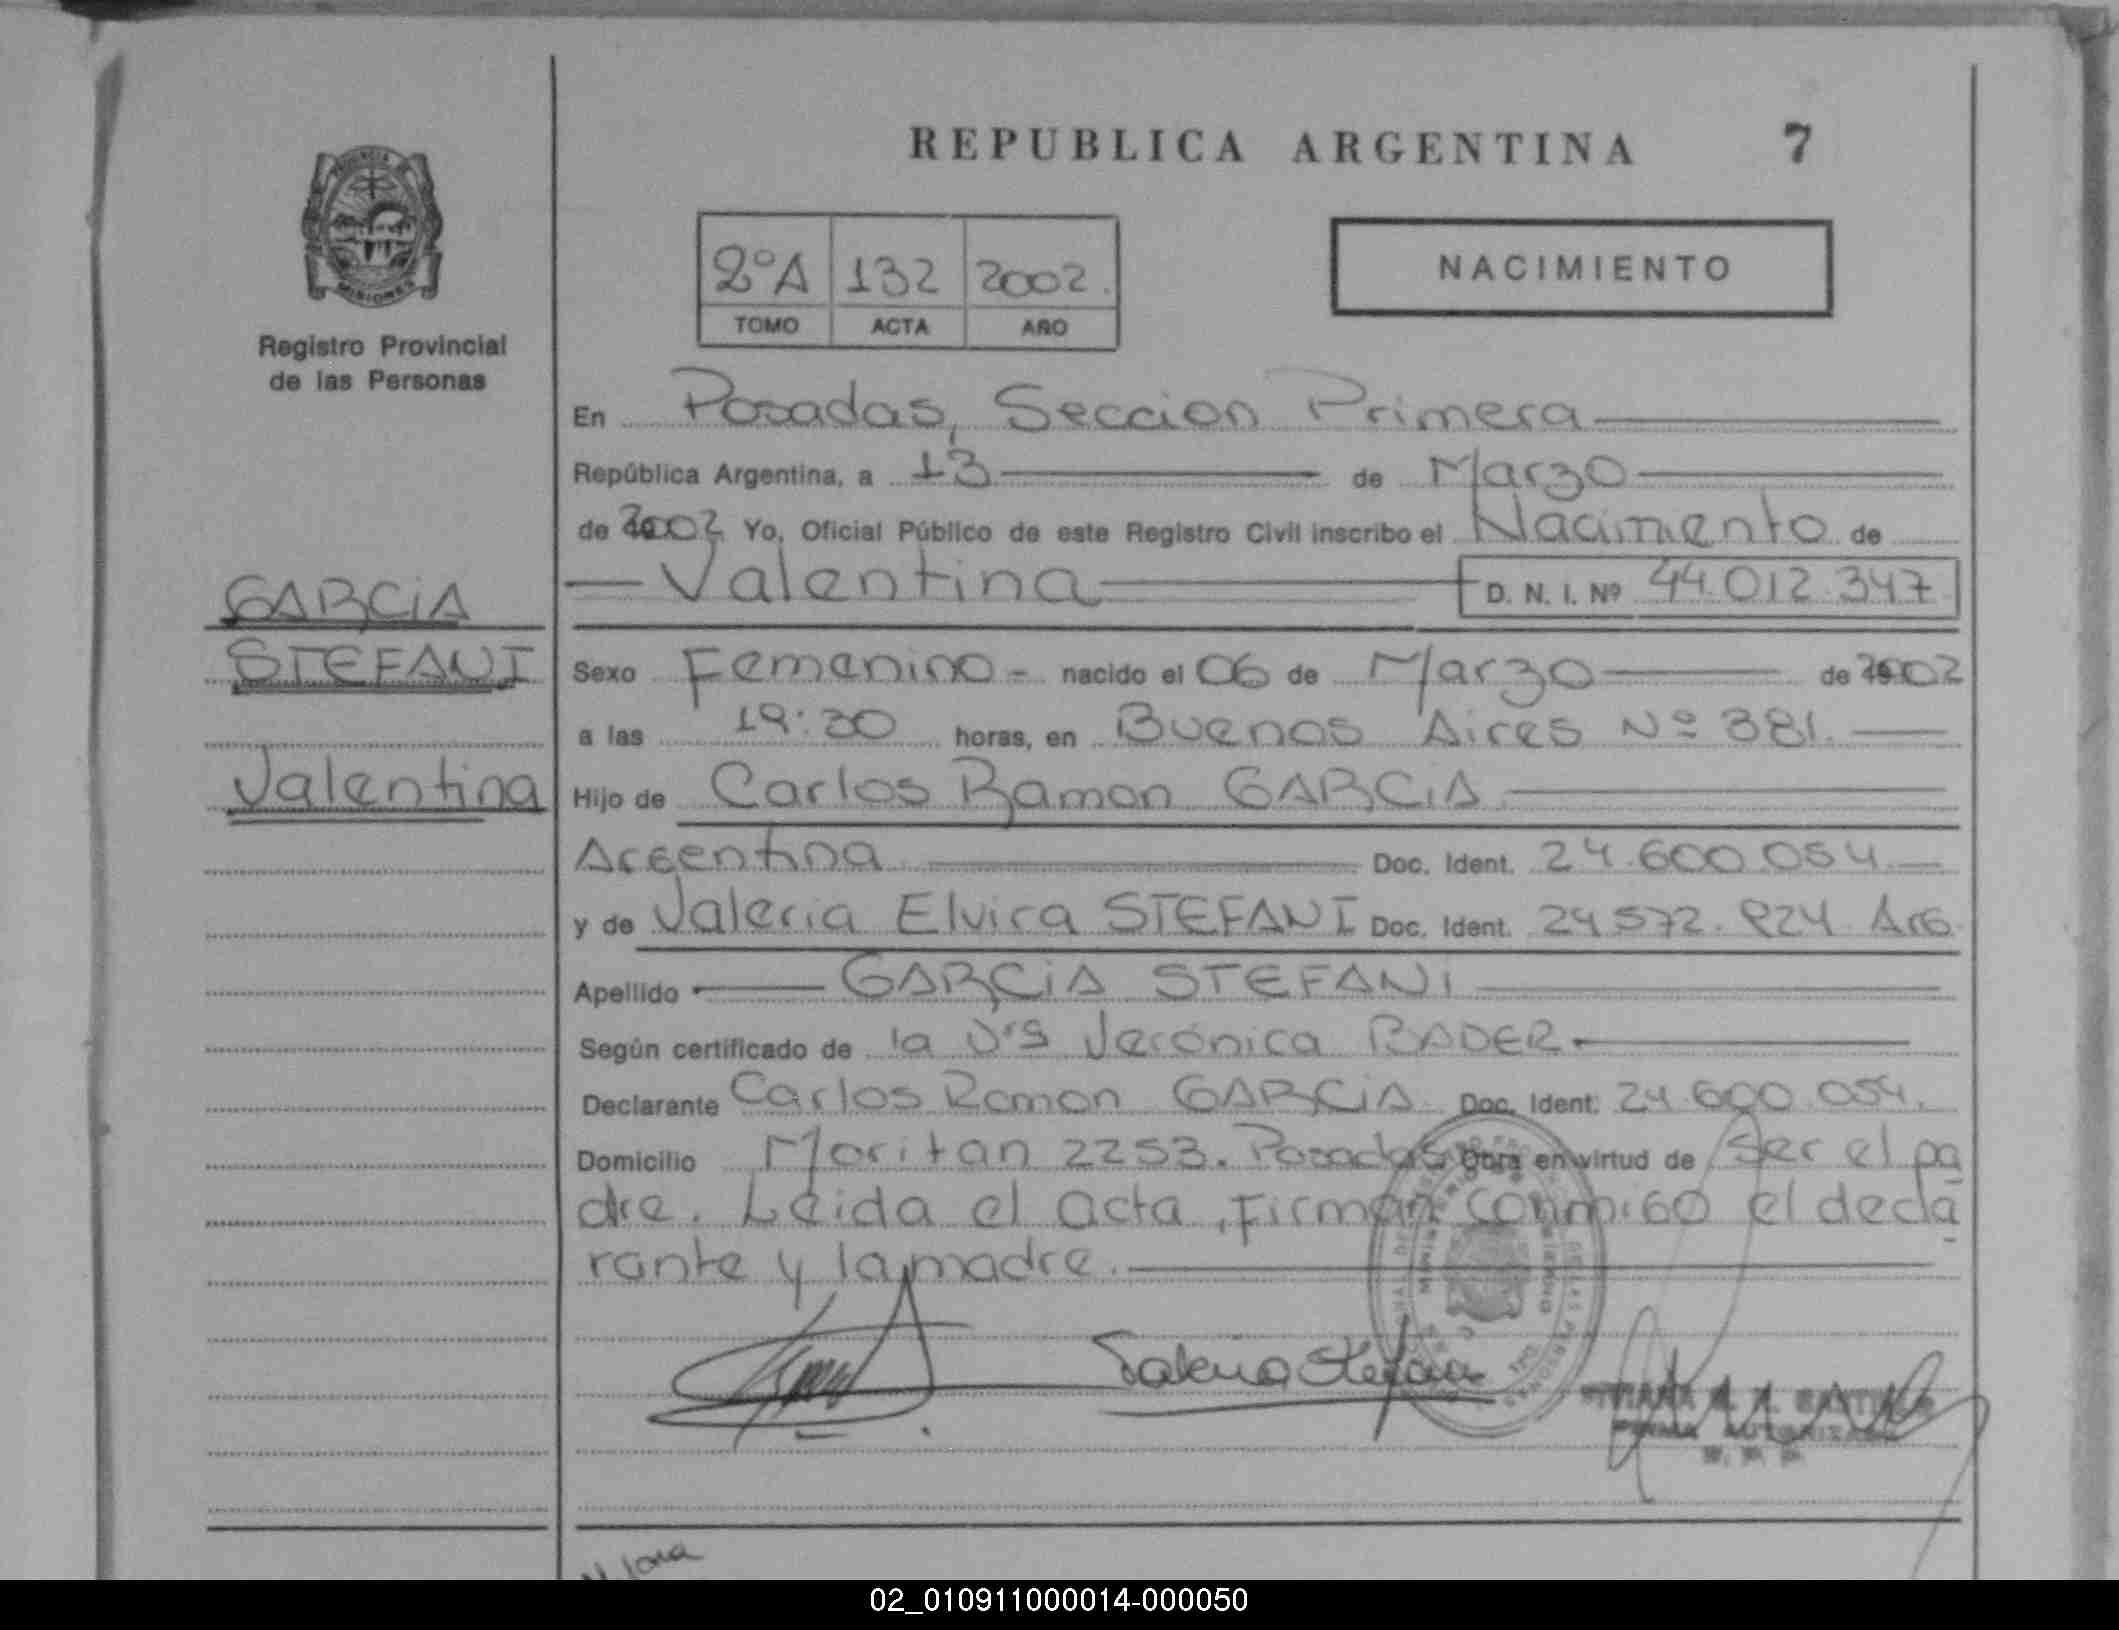 REPUBLICA ARGENTINA 7
PROVINCIA DE
MISIONES
Registro Provincial
de las Personas
2ºA 132 2002.
TOMO ACTA AÑO
NACIMIENTO
En Posadas, Seccion Primera
República Argentina, a 13 de Marzo
de 2002 Yo, Oficial Público de este Registro Civil inscribo el Nacimiento de
Valentina D. N. I. Nº 44.012.347
GARCiA
STEFANI
Valentina
Sexo Femenino - nacido el 06 de Marzo de 2002
a las 19:30 horas, en Buenos Aires Nº 381.
Hijo de Carlos Ramon GARCiA
Argentina Doc. Ident. 24.600.054
y de Valeria Elvira STEFANI Doc. Ident. 24.572. Arg.
Apellido GARCiA STEFANI
Según certificado de la Verónica BADER
Declarante Carlos Ramon GARCiA Doc. Ident. 24.600.054.
Domicilio Moritan 2253. Posadas Obra en virtud de ser el pa
dre. Leida el acta, Firman conmigo el decla
rante y la madre.
Valeria Stefani
FIRMA AUTORIZADA
02_010911000014-000050